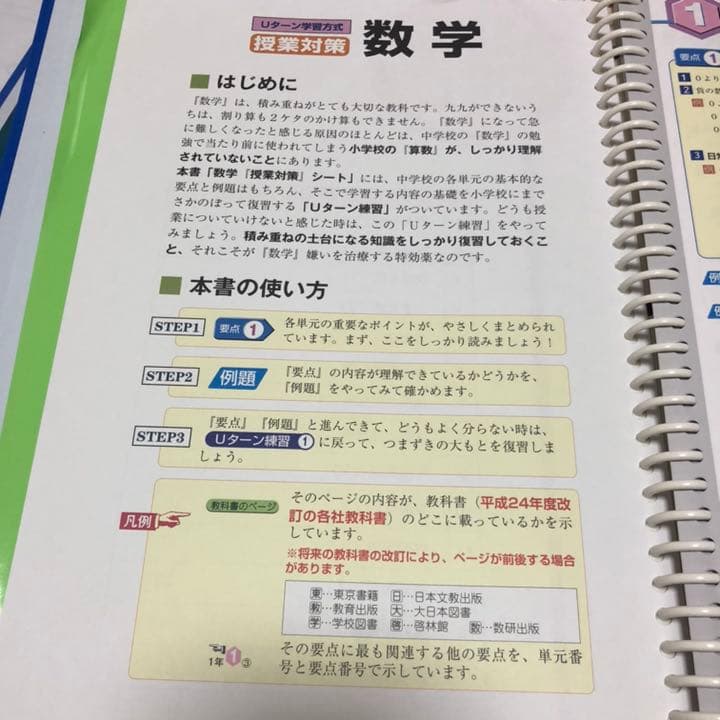 Uターン学習方式
授業対策 数学
はじめに
『数学』は、積み重ねがとても大切な教科です。九九ができないう
ちは、割り算も2ケタのかけ算もできません。『数学』になって急
に難しくなったと感じる原因のほとんどは、中学校の『数学』の勉
強で当たり前に使われてしまう小学校の『算数』が、しっかり理解
されていないことにあります。
本書「数学『授業対策』シート」には、中学校の各単元の基本的な
要点と例題はもちろん、そこで学習する内容の基礎を小学校にまで
さかのぼって復習する「Uターン練習」がついています。どうも授
業についていけないと感じた時は、この「Uターン練習」をやって
みましょう。積み重ねの土台になる知識をしっかり復習しておくこ
と、それこそが『数学』嫌いを治療する特効薬なのです。
本書の使い方
STEP1 要点 1 各単元の重要なポイントが、やさしくまとめられ
ています。まず、ここをしっかり読みましょう！
STEP2 例題 『要点』の内容が理解できているかどうかを、
『例題』をやってみて確かめます。
STEP3 『要点』『例題』と進んできて、どうもよく分らない時は、
Uターン練習 1 に戻って、つまずきの大もとを復習しま
しょう。
凡例 教科書のページ そのページの内容が、教科書（平成24年度改
訂の各社教科書）のどこに載っているかを示
しています。
※将来の教科書の改訂により、ページが前後する場合
があります。
東…東京書籍 日…日本文教出版
教…教育出版 大…大日本図書
学…学校図書 啓…啓林館 数…数研出版
1年 1 ③ その要点に最も関連する他の要点を、単元番
号と要点番号で示しています。
1
要点 1
1 0より
2 負の数
例
3
例
例